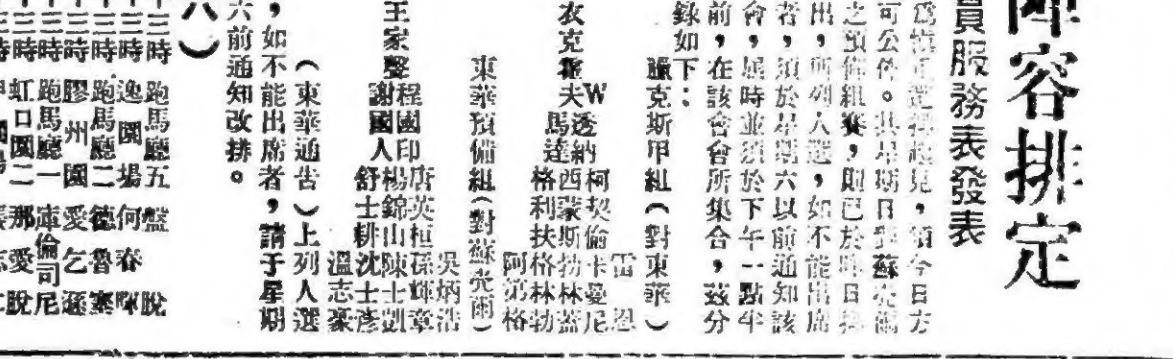 陣容排定
員服務表發表
爲愼重選擇起見，須今日方
可公佈。其星期日對蘇克爾
之預備組賽，則已於昨日排
出，所列人選，如不能出席
者，須於星期六以前通知該
會，屆時並須於下午一點半
前，在該會會所集合，茲分
錄如下：
臘克斯甲組（對東華）
雷恩
柯契倫卡曼尼
W透納西蒙斯勃林蓋
衣克霍夫馬達格利扶格林勃
阿第格
東華預備組（對蘇克爾）
吳炳浩
唐英桓孫輝章
程國印楊錦山陳士凱
王家聲謝國人舒士耕沈士彥
溫志豪
（東華通告）上列人選
，如不能出席者，請于星期
六前通知改排。
八）
三時 跑馬廳五 盤脫
三時 逸園場 何春暉
三時 跑馬廳二 德魯塞
三時 膠州園 愛乞遜
三時 跑馬廳一 庫倫司尼
時 虹口園二 那愛脫